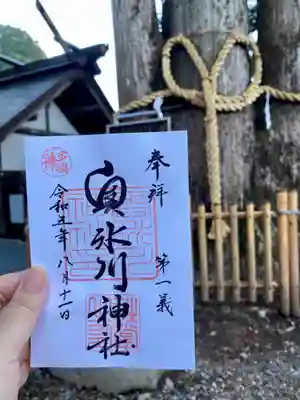 奉拝
第一義
奥氷川神社
令和五年八月十一日